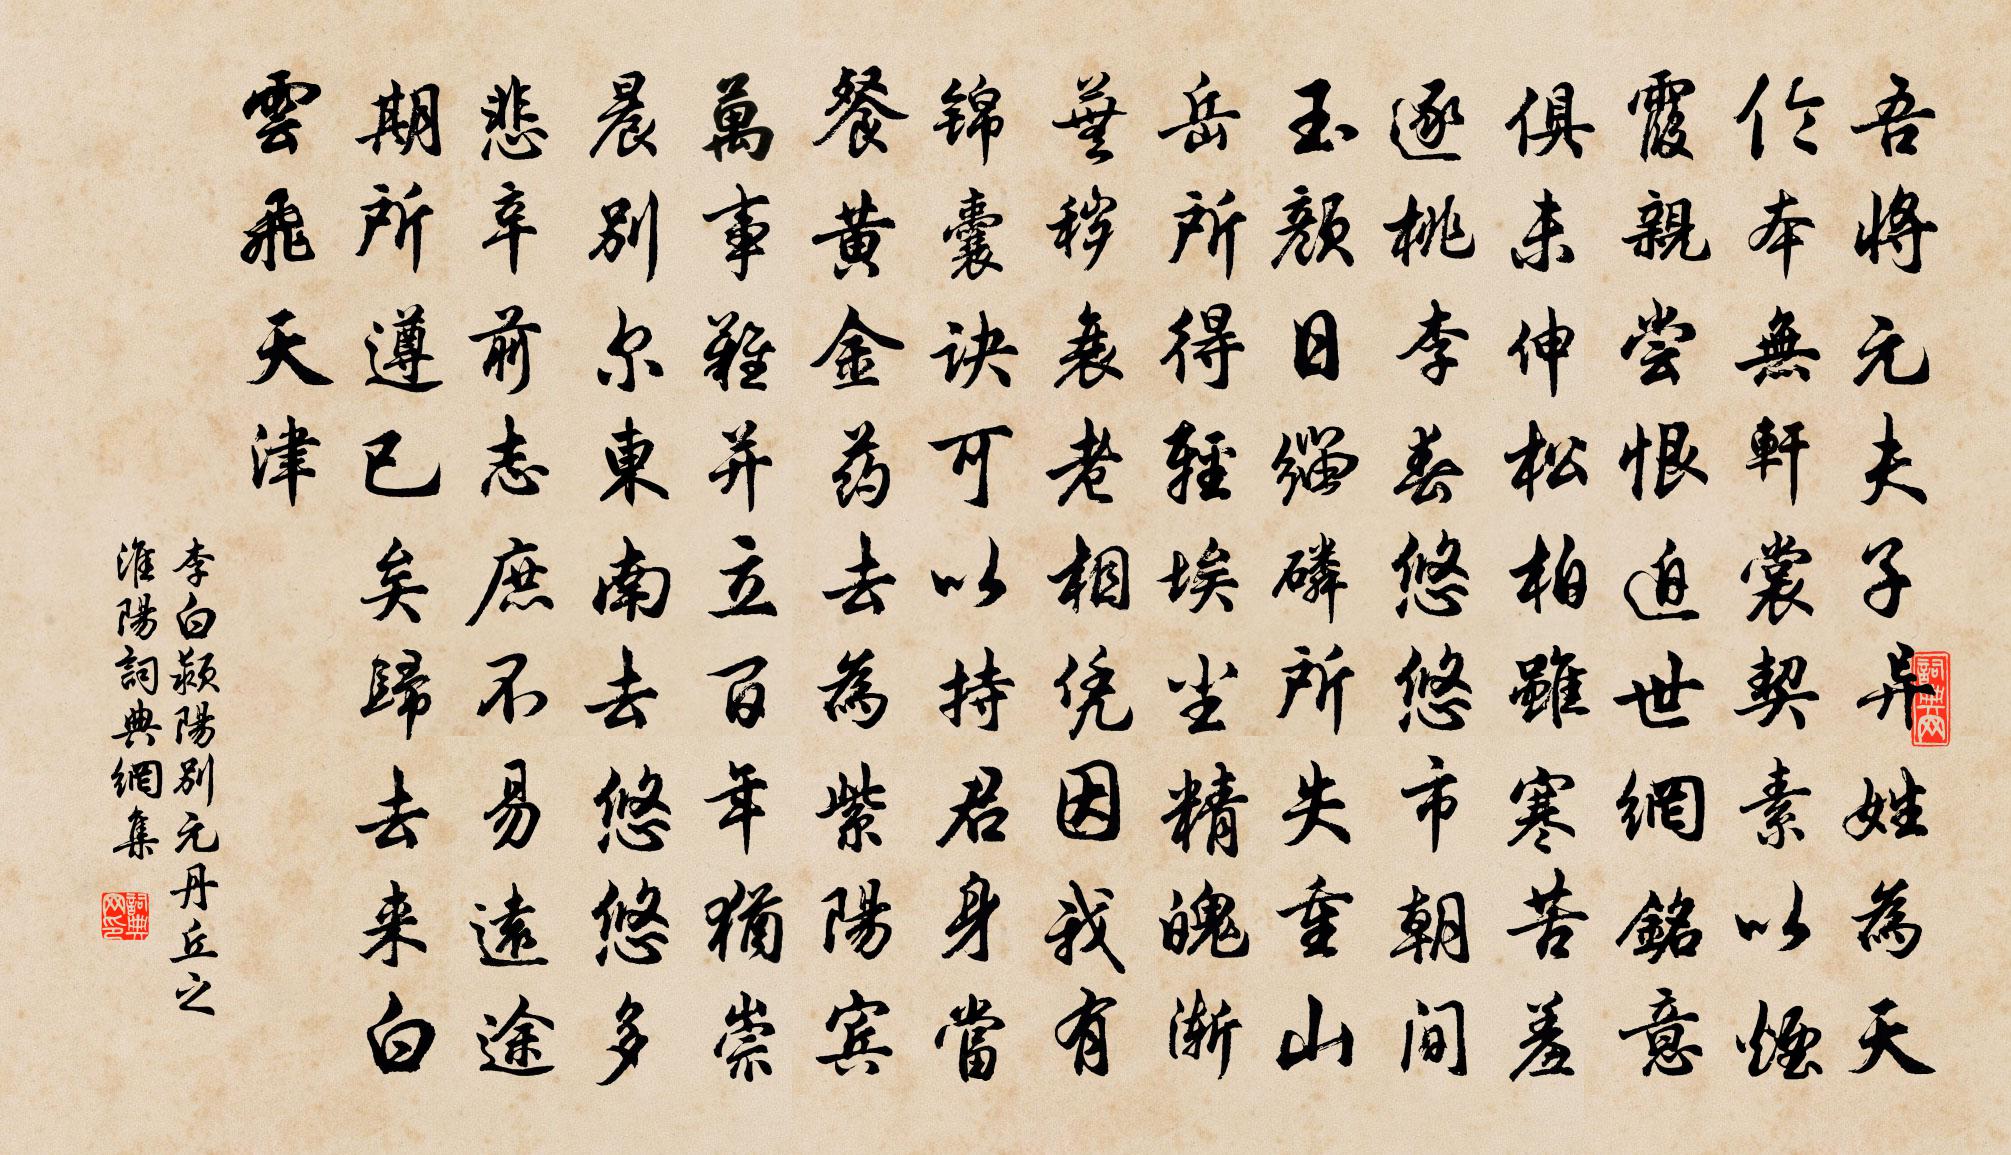 吾將元夫子异姓為天
伦本無軒裳契素以煙
霞親尝恨迫世網銘意
俱未伸松柏雖寒苦羞
逐桃李春悠悠市朝间
玉颜日缁磷所失重山
岳所得輕埃尘精魄渐
蕪秽衰老相凭因我有
锦囊诀可以持君身當
餐黄金药去為紫陽宾
萬事難并立百年猶崇
晨别尔東南去悠悠多
悲辛前志庶不易遠途
期所遵已矣歸去来白
雲飛天津
李白颍陽别元丹丘之
淮陽詞典網集
詞典网
詞典网印